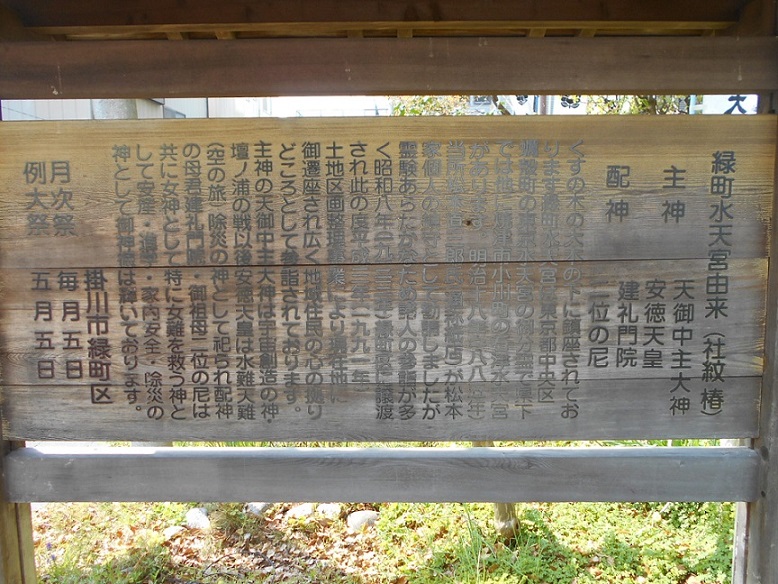 緑町水天宮由来（社紋椿）
主神 天御中主大神
安徳天皇
配神 建礼門院
二位の尼
くすの木の大木の下に鎮座されてお
ります緑町水天宮は東京都中央区
蛎殻町の東京水天宮の御分霊で県下
では他に焼津市小川港の 水天宮
があります。明治十八年 八八五年
当所松本
家個人の 守 として勧請しましたが
霊験あらたかなため 人の参詣が多
く昭和八年(一九三三年)緑町区に譲渡
され此の度平成三年(一九九一年)
土地区画整理事業により現在地に
御遷座され広く地域住民の心の拠り
どころとして参詣されております。
主神の天御中主大神は宇宙創造の神・
壇ノ浦の戦以後安徳天皇は水難天難
(空の旅)除災の神として祀られ配神
の母君建礼門院・御祖母二位の尼は
共に女神として特に女難を救う神と
して安産・進学・家内安全・除災の
神として御神徳は輝いております。
月次祭 毎月五日
例大祭 五月五日
掛川市緑町区
大